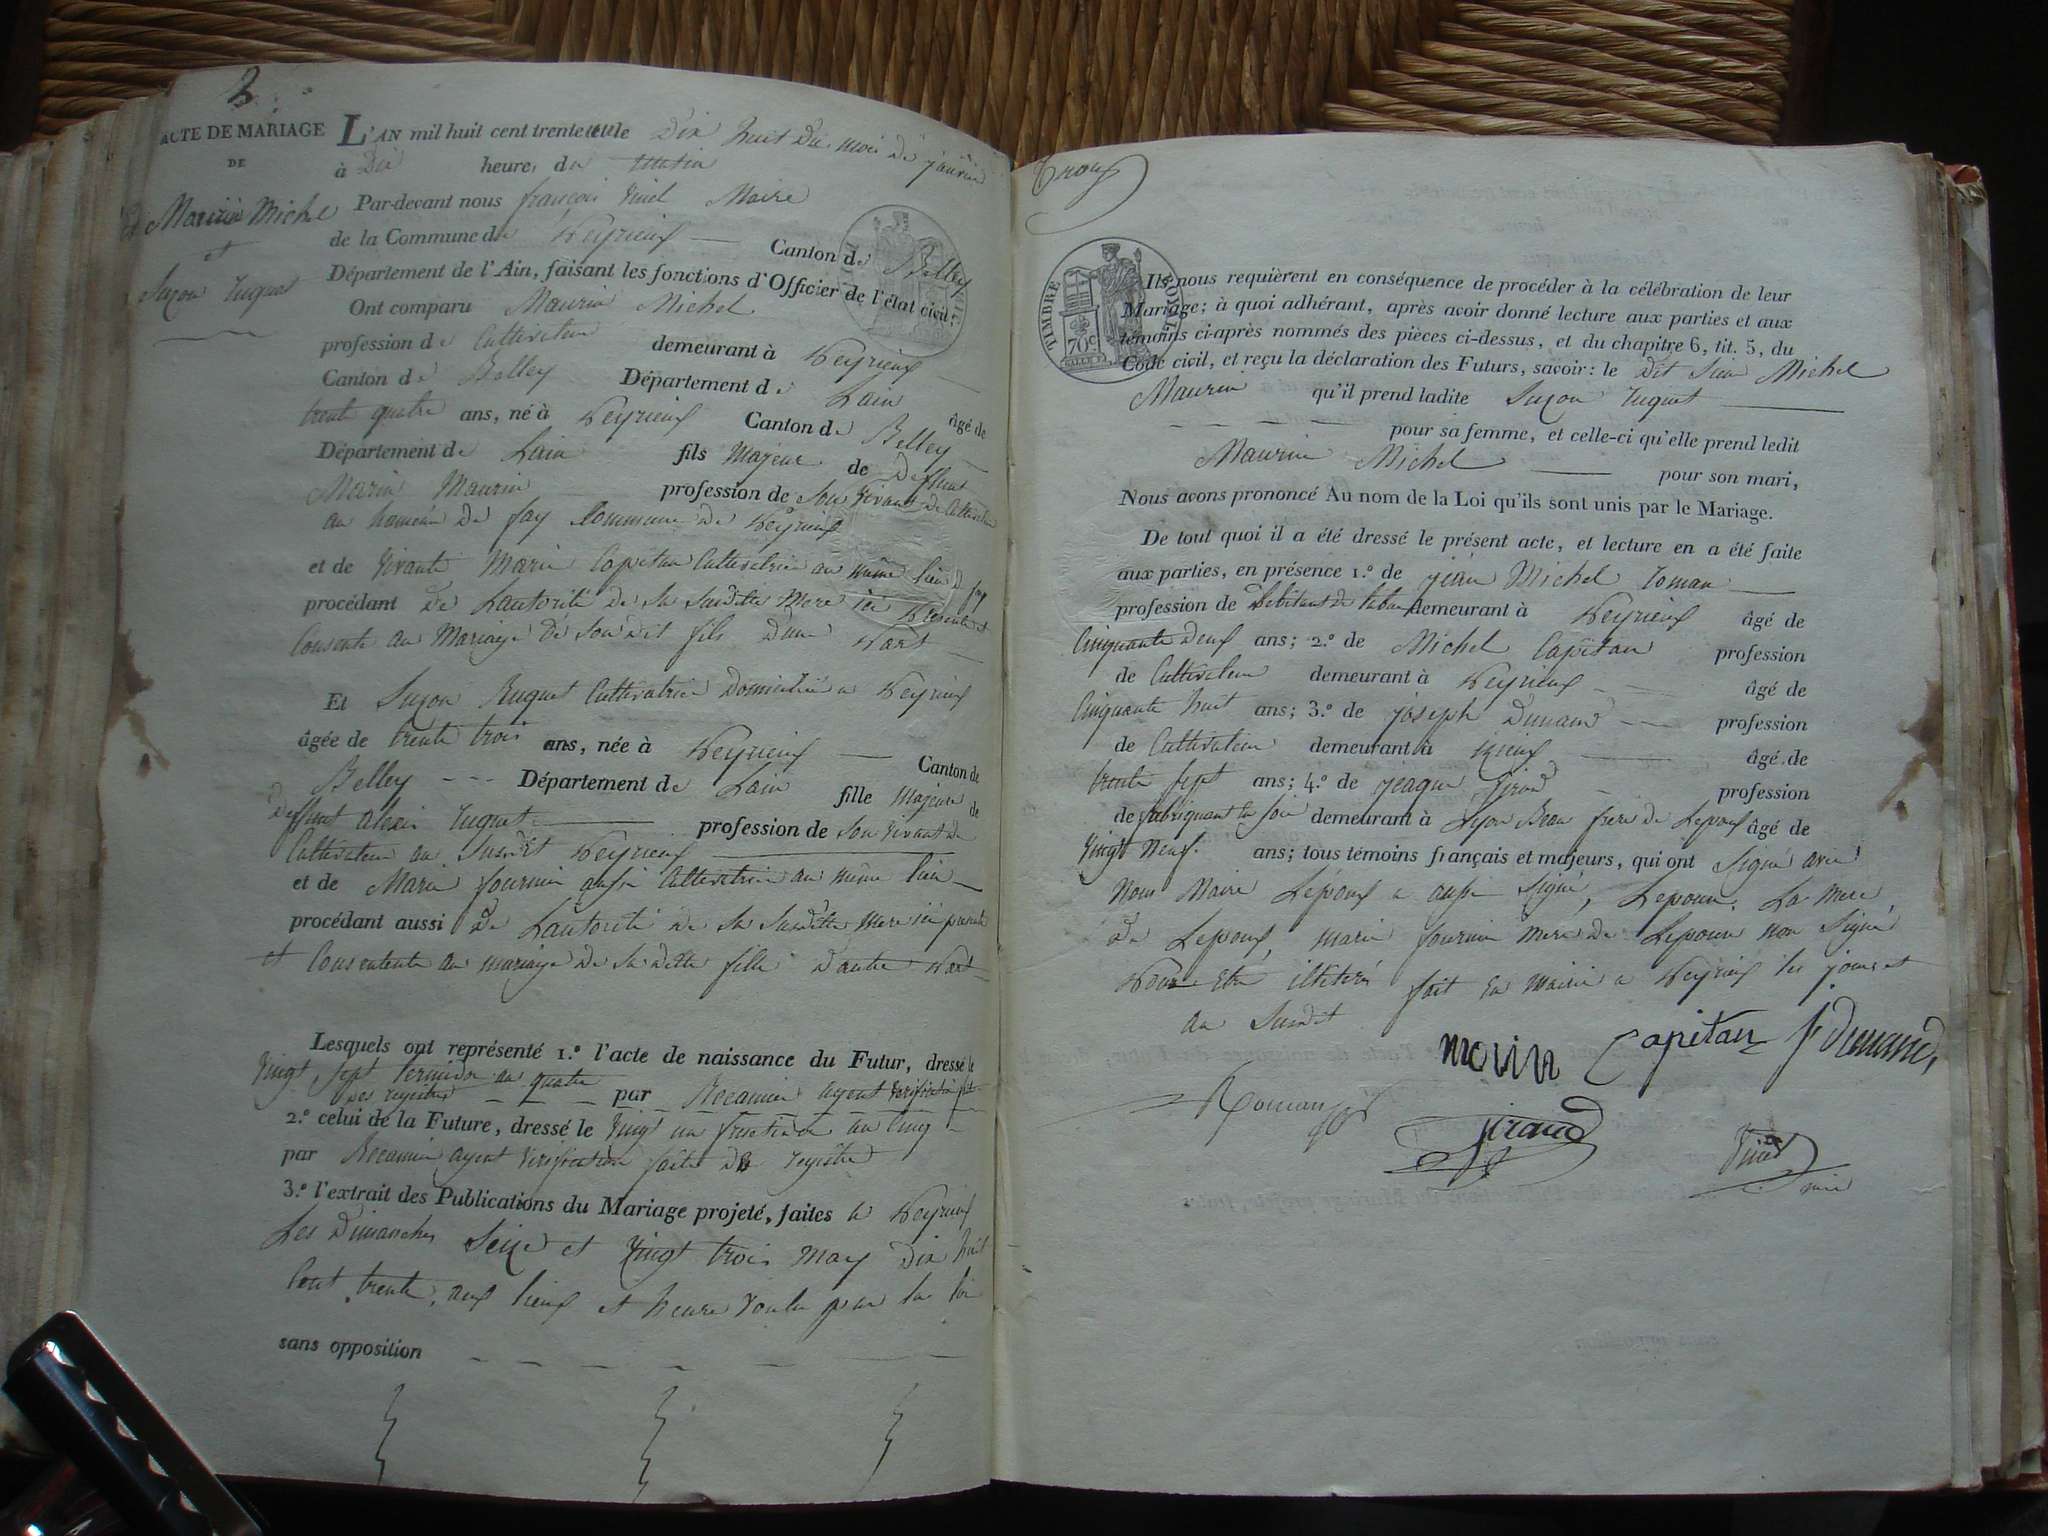 2
ACTE DE MARIAGE
DE
Maurin Michel
et
Suzon Tuquet
L'AN mil huit cent trente et le Dix huit du mois de janvier
à Dix heure, du matin
Par-devant nous françois Vuiel Maire
de la Commune de Peyrieux Canton de Belley
Département de l'Ain, faisant les fonctions d'Officier de l'état civil;
Ont comparu Maurin Michel
profession de Cultivateur demeurant à Peyrieux
Canton de Belley Département de Lain âgé de
trente quatre ans, né à Peyrieux Canton de Belley
Département de Lain fils Majeur de Deffunt
Marin Maurin profession de Son Vivant de Cultivateur
au hameau de fay Commune de Peyrieux
et de Vivante Marie Capitan Cultivatrice au même lieu de fay
procédant De Lautorité de Sa Susditte Mere ici Présente et
Consente au Mariage de Son dit fils D'une Part
Et Suzon Tuquet Cultivatrice Domiciliée a Peyrieux
âgée de trente trois ans, née à Peyrieux Canton de
Belley Département de Lain fille Majeure de
Deffunt alexis Tuquet profession de Son Vivant de
Cultivateur au Susdit Peyrieux
et de Marie fournier aussi Cultivatrice au même lieu
procédant aussi De Lautorité de Sa Susditte Mere ici presente
et Consentente au mariage de Sa ditte fille D'autre Part
Lesquels ont représenté 1.º l'acte de naissance du Futur, dressé le
Vingt Sept an quatre par Recamier ayent Verification
des registres
2.º celui de la Future, dressé le Vingt un fructidor an Cinq
par Recamier ayent Verification faite de registre
3.º l'extrait des Publications du Mariage projeté, faites a Peyrieux
Les Dimanches Seize et Vingt trois may Dix huit
Cent trente, aux lieux et heure Voulu par la loi
sans opposition
Trois
TIMBRE ROYAL
70c
Ils nous requièrent en conséquence de procéder à la célébration de leur
Mariage; à quoi adhérant, après avoir donné lecture aux parties et aux
témoins ci-après nommés des pièces ci-dessus, et du chapitre 6, tit. 5, du
Code civil, et reçu la déclaration des Futurs, savoir: le Dit Sieur Michel
Maurin qu'il prend ladite Suzon Tuquet
pour sa femme, et celle-ci qu'elle prend ledit
Maurin Michel pour son mari,
Nous avons prononcé Au nom de la Loi qu'ils sont unis par le Mariage.
De tout quoi il a été dressé le présent acte, et lecture en a été faite
aux parties, en présence 1.º de jean Michel Roman
profession de Debitant de tabac demeurant à Peyrieux âgé de
Cinquante Deux ans; 2.º de Michel Capitan profession
de Cultivateur demeurant à Peyrieux âgé de
Cinquante huit ans; 3.º de joseph Dunand profession
de Cultivateur demeurant à âgé de
trente Sept ans; 4.º de jeaque Girod profession
de fabriquant en Soie demeurant à Lyon Beau frere de Lepoux âgé de
Vingt Neuf ans; tous témoins français et majeurs, qui ont Signé avec
Nous Maire Lépoux a aussi Signé, Lepouse, La Mere,
De Lepoux, marie fournier mere de Lepouse non Signé
Pour Etre illiteré fait en Mairie a Peyrieux les jours et
an Susdit
morin Capitan J Dunand
Roman Giraud Vuiel
mre